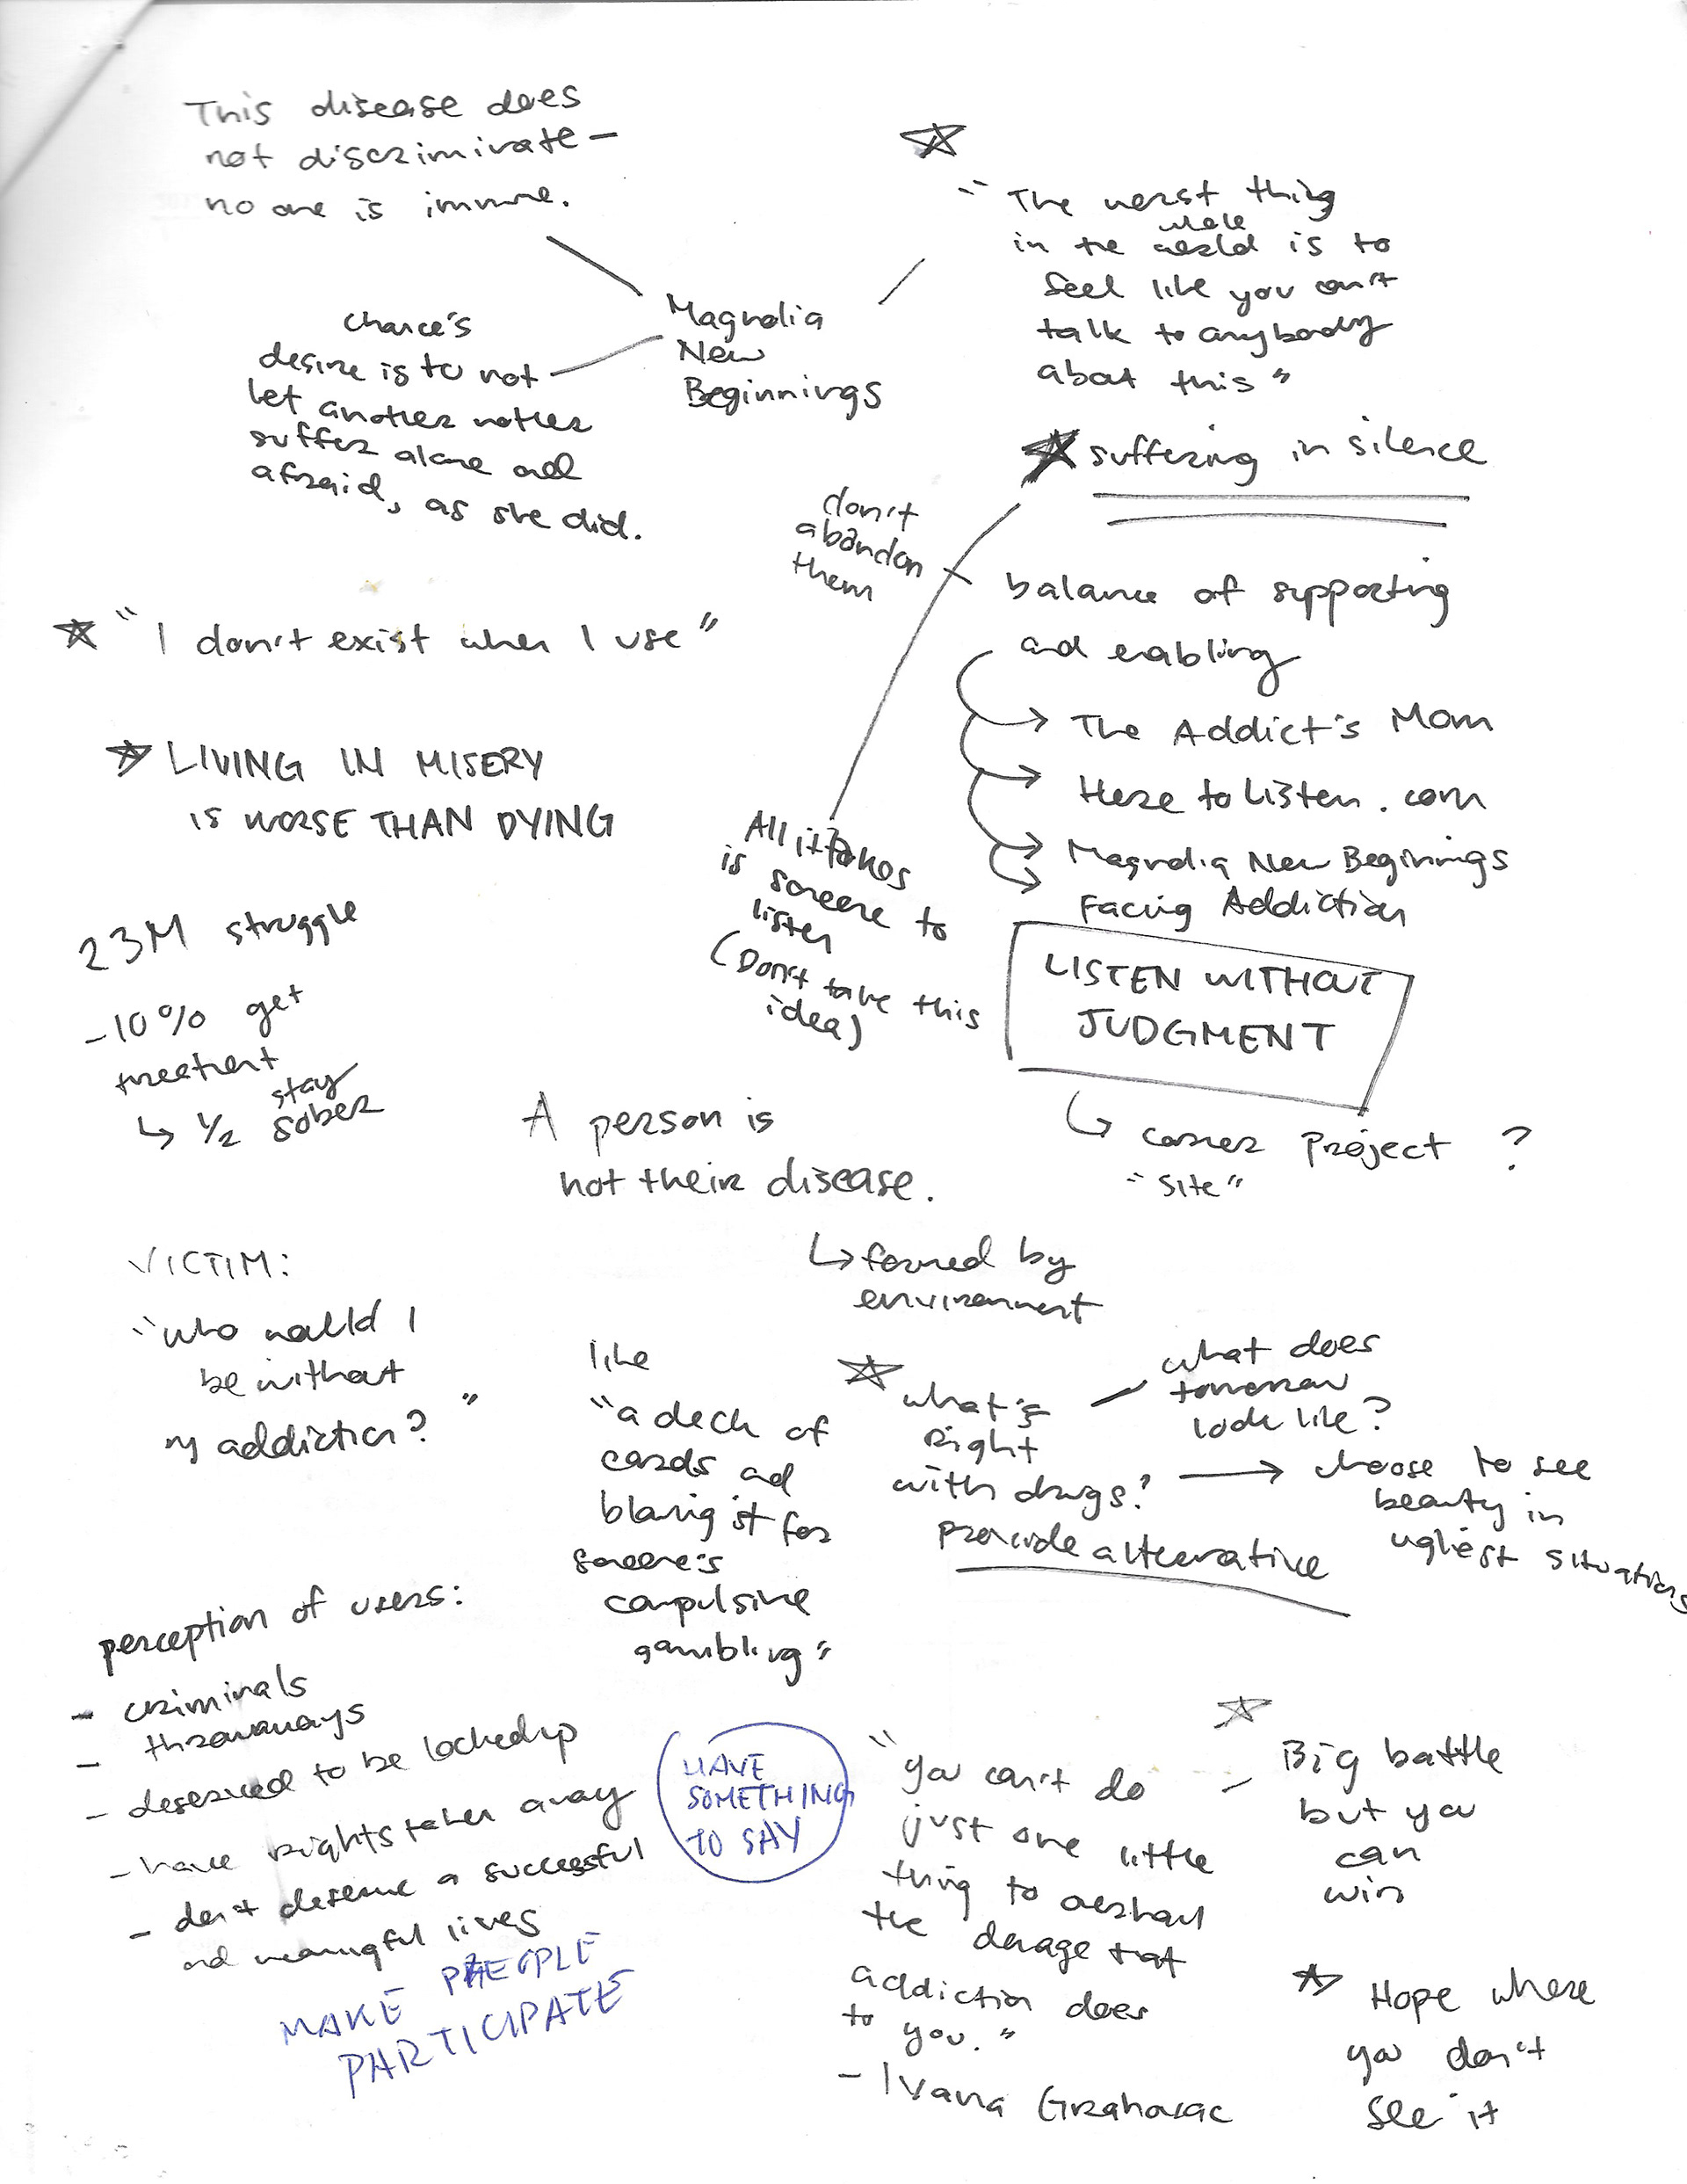 This disease does
not discriminate —
no one is immune.
"The worst thing
whole
in the world is to
feel like you can't
talk to anybody
about this"
Magnolia
New
Beginnings
Chance's
desire is to not
let another mother
suffer alone and
afraid, as she did.
suffering in silence
don't
abandon
them
balance of supporting
and enabling
The Addict's Mom
Here to Listen.com
Magnolia New Beginnings
Facing Addiction
"I don't exist when I use"
LIVING IN MISERY
IS WORSE THAN DYING
All it takes
is someone to
listen
(Don't take this
idea)
LISTEN WITHOUT
JUDGMENT
career Project ?
"Site"
23M struggle
-10% get
treatment
stay
↳ 1/2 sober
A person is
not their disease.
↳ formed by
environment
VICTIM:
"who would I
be without
my addiction?"
like
"a deck of
cards and
blaming it for
someone's
compulsive
gambling"
what's
right
with drugs?
provide alternative
what does
tomorrow
look like?
choose to see
beauty in
ugliest situations
perception of users:
- criminals
- throwaways
- deserved to be locked up
- have rights taken away
- don't deserve a successful
and meaningful lives
MAKE PEOPLE
PARTICIPATE
HAVE
SOMETHING
TO SAY
"you can't do
just one little
thing to
the damage that
addiction does
to you."
- Ivana Grahovac
Big battle
but you
can
win
Hope where
you don't
see it